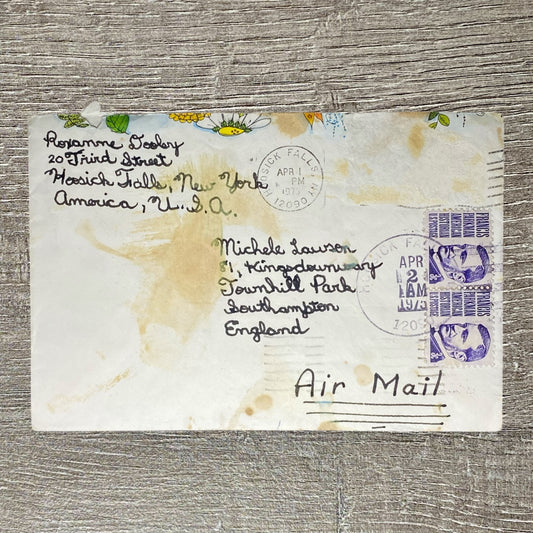 Roxanne Dooley
20 Third Street
Hoosick Falls, New York
America, U.S.A.
HOOSICK FALLS
APR 1
PM
1975
12090 NY
Michele Lawson
81, Kingsdownway
Townhill Park
Southampton
England
APR
2
AM
1975
FRANCIS
PARKMAN
AMERICAN
HISTORIAN
FRANCIS
PARKMAN
AMERICAN
HISTORIAN
Air Mail